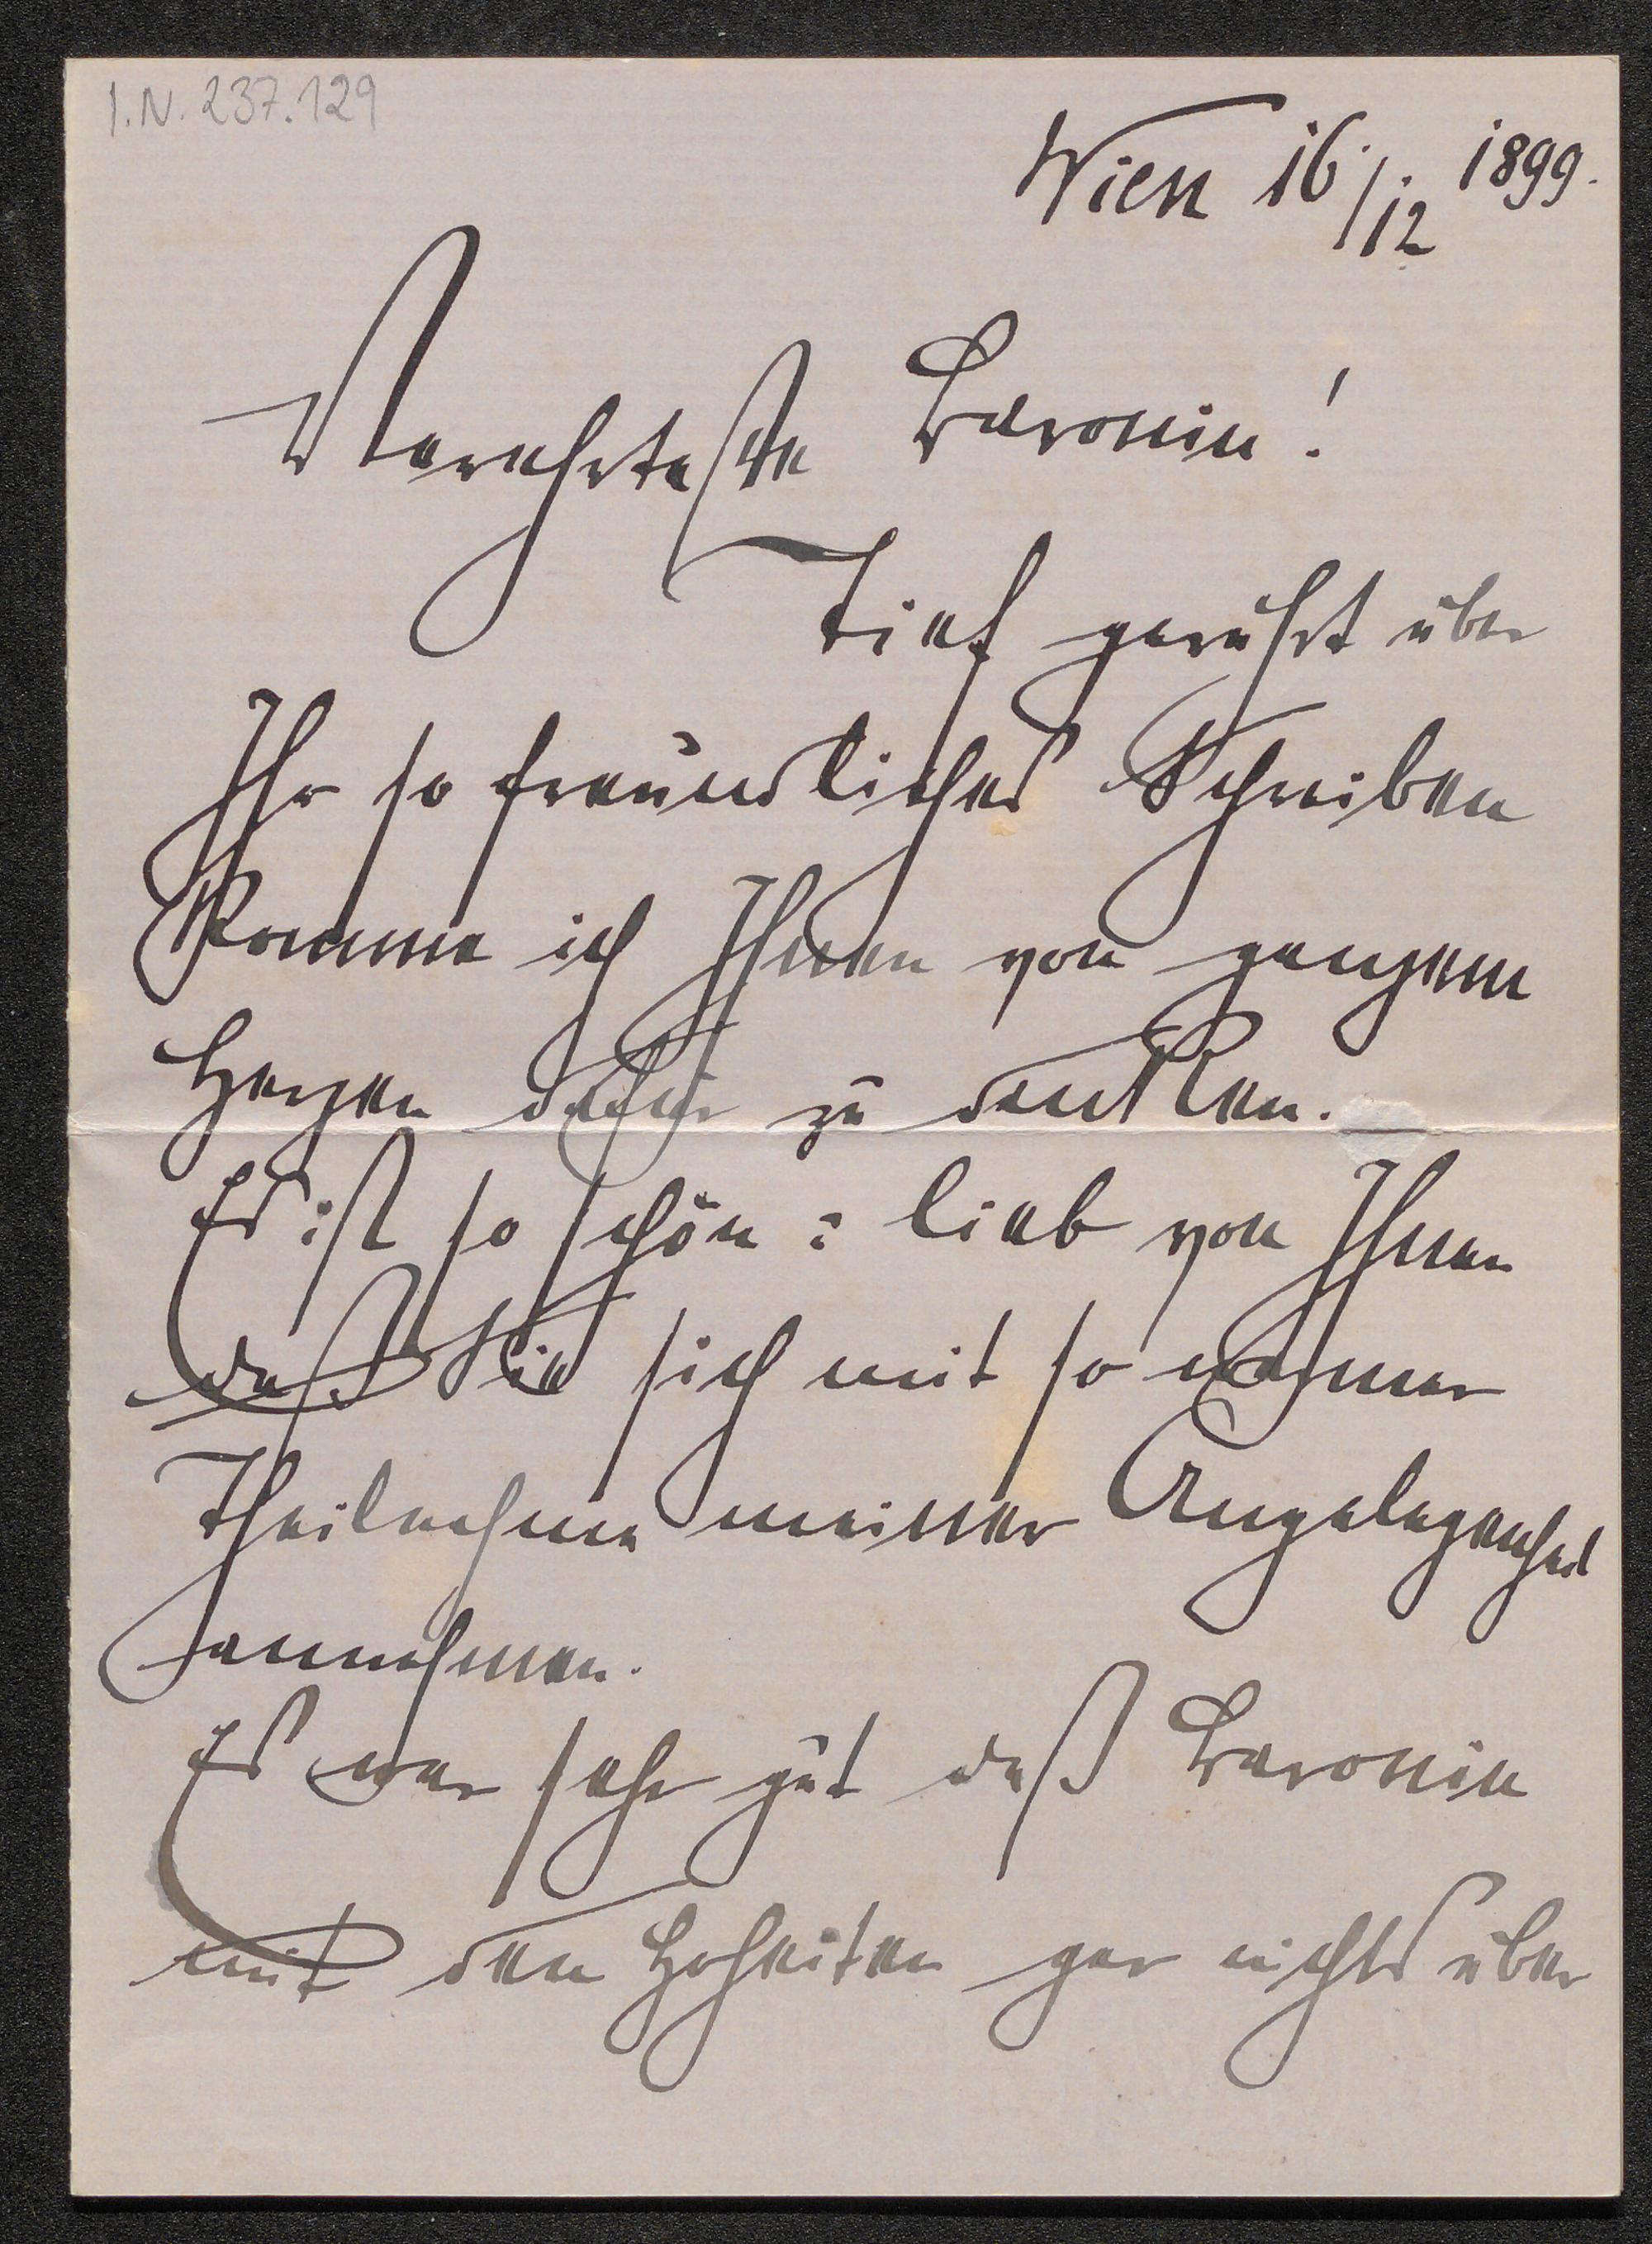 I.N. 237.129
Wien 16./12. 1899.
Verehrteste Baronin!
Tief gerührt über
Ihr so freundliches Schreiben
komme ich Ihnen von ganzem
Herzen dafür zu danken.
Es ist so schön u. lieb von Ihnen
daß Sie sich mit so warmer
Theilnahme meiner Angelegenheit
annehmen.
Es war sehr gut daß Baronin
mit den Hoheiten gar nichts über